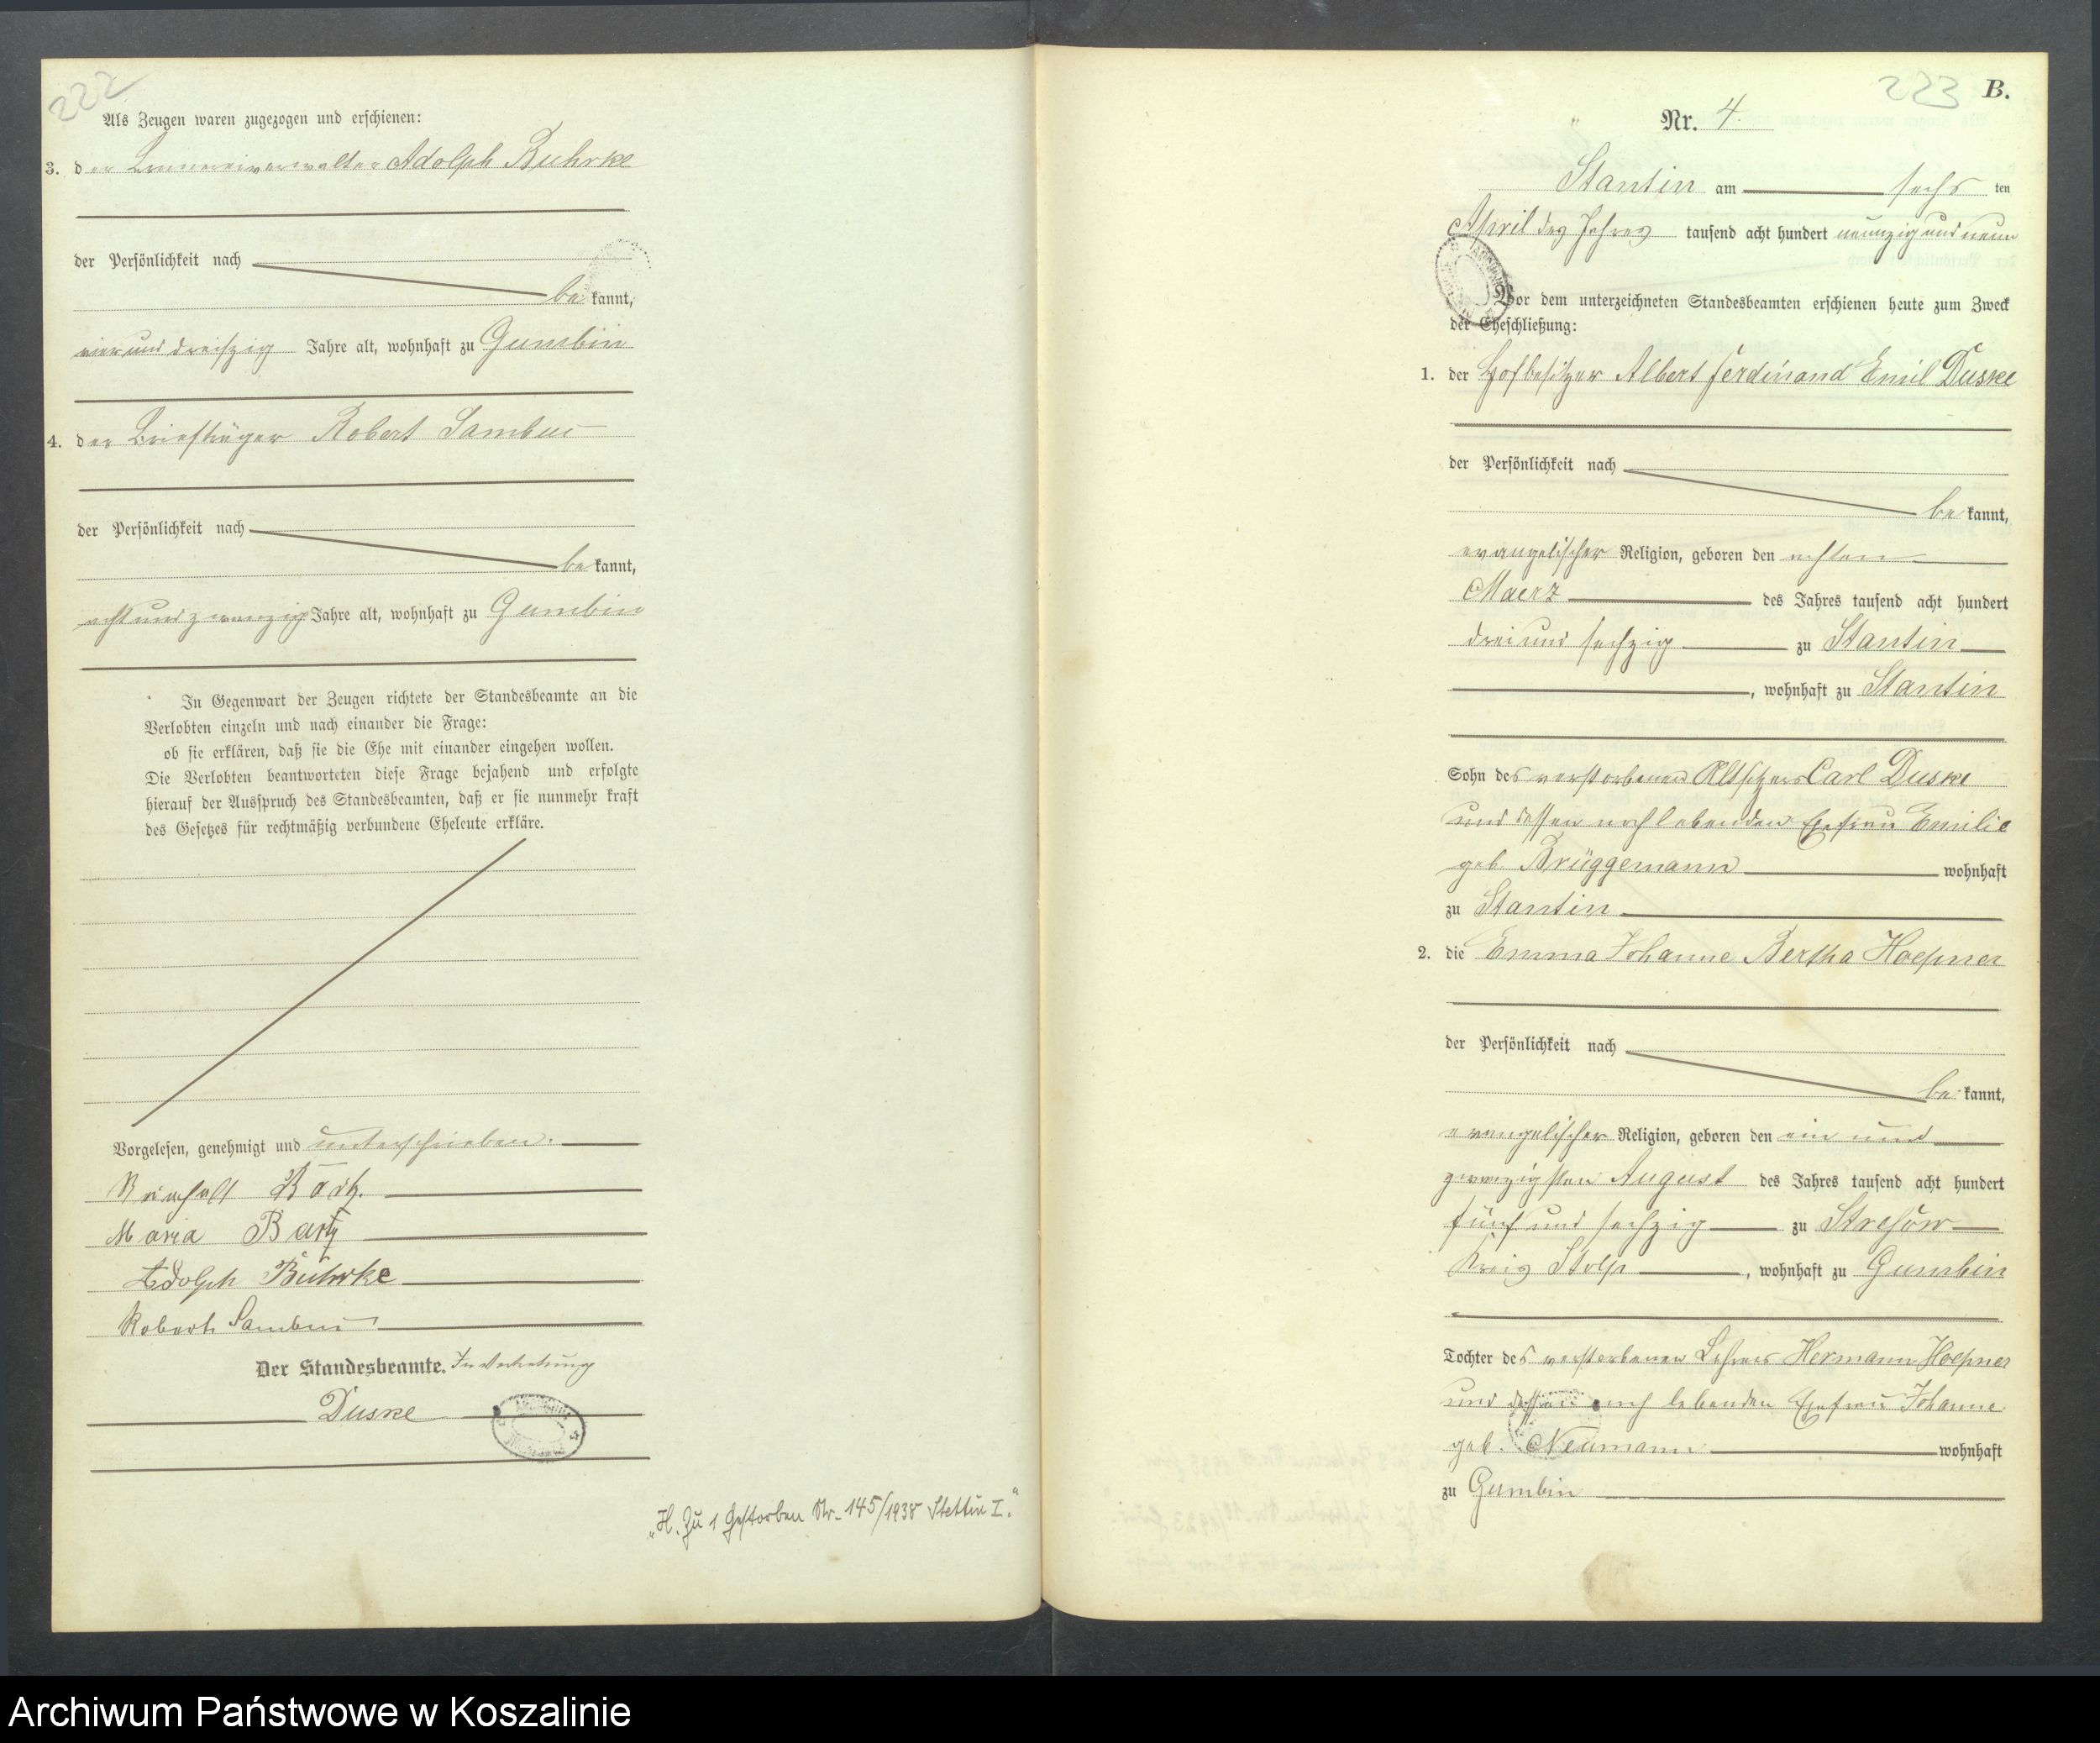 222
Als Zeugen waren zugezogen und erschienen:
3. der Brennereiverwalter Adolph Buhrke
der Persönlichkeit nach
bekannt,
vierunddreißzig Jahre alt, wohnhaft zu Gumbin
4. der Briefträger Robert Sambus
der Persönlichkeit nach
bekannt,
achtundzwanzig Jahre alt, wohnhaft zu Gumbin
In Gegenwart der Zeugen richtete der Standesbeamte an die
Verlobten einzeln und nach einander die Frage:
ob sie erklären, daß sie die Ehe mit einander eingehen wollen.
Die Verlobten beantworteten diese Frage bejahend und erfolgte
hierauf der Ausspruch des Standesbeamten, daß er sie nunmehr kraft
des Gesetzes für rechtmäßig verbundene Eheleute erkläre.
Vorgelesen, genehmigt und unterschrieben.
Reinholt
Maria
Adolph Buhrke
Robert Sambus
Der Standesbeamte. In Vertretung
Duske
„H. Zu 1 Gestorben Nr. 145/1938 Stettin I."
223 B.
Nr. 4.
Stantin am sechsten
April des Jahres tausend acht hundert neunzig und neun
Vor dem unterzeichneten Standesbeamten erschienen heute zum Zweck
der Eheschließung:
1. der Hofbesitzer Albert Ferdinand Emil Duske
der Persönlichkeit nach
bekannt,
evangelischer Religion, geboren den achten
Maerz des Jahres tausend acht hundert
drei und sechzig zu Stantin
, wohnhaft zu Stantin
Sohn des verstorbenen Altsitzers Carl Duske
und dessen noch lebenden Ehefrau Emilie
geb. Brüggemann wohnhaft
zu Stantin
2. die Emma Johanne Bertha Hoepner
der Persönlichkeit nach
bekannt,
evangelischer Religion, geboren den ein und
zwanzigsten August des Jahres tausend acht hundert
fünf und sechzig zu Stresow
Kreis Stolp, wohnhaft zu Gumbin
Tochter des verstorbenen Lehrers Hermann Hoepner
und dessen noch lebenden Ehefrau Johanne
geb. Neumann wohnhaft
zu Gumbin
Archiwum Państwowe w Koszalinie